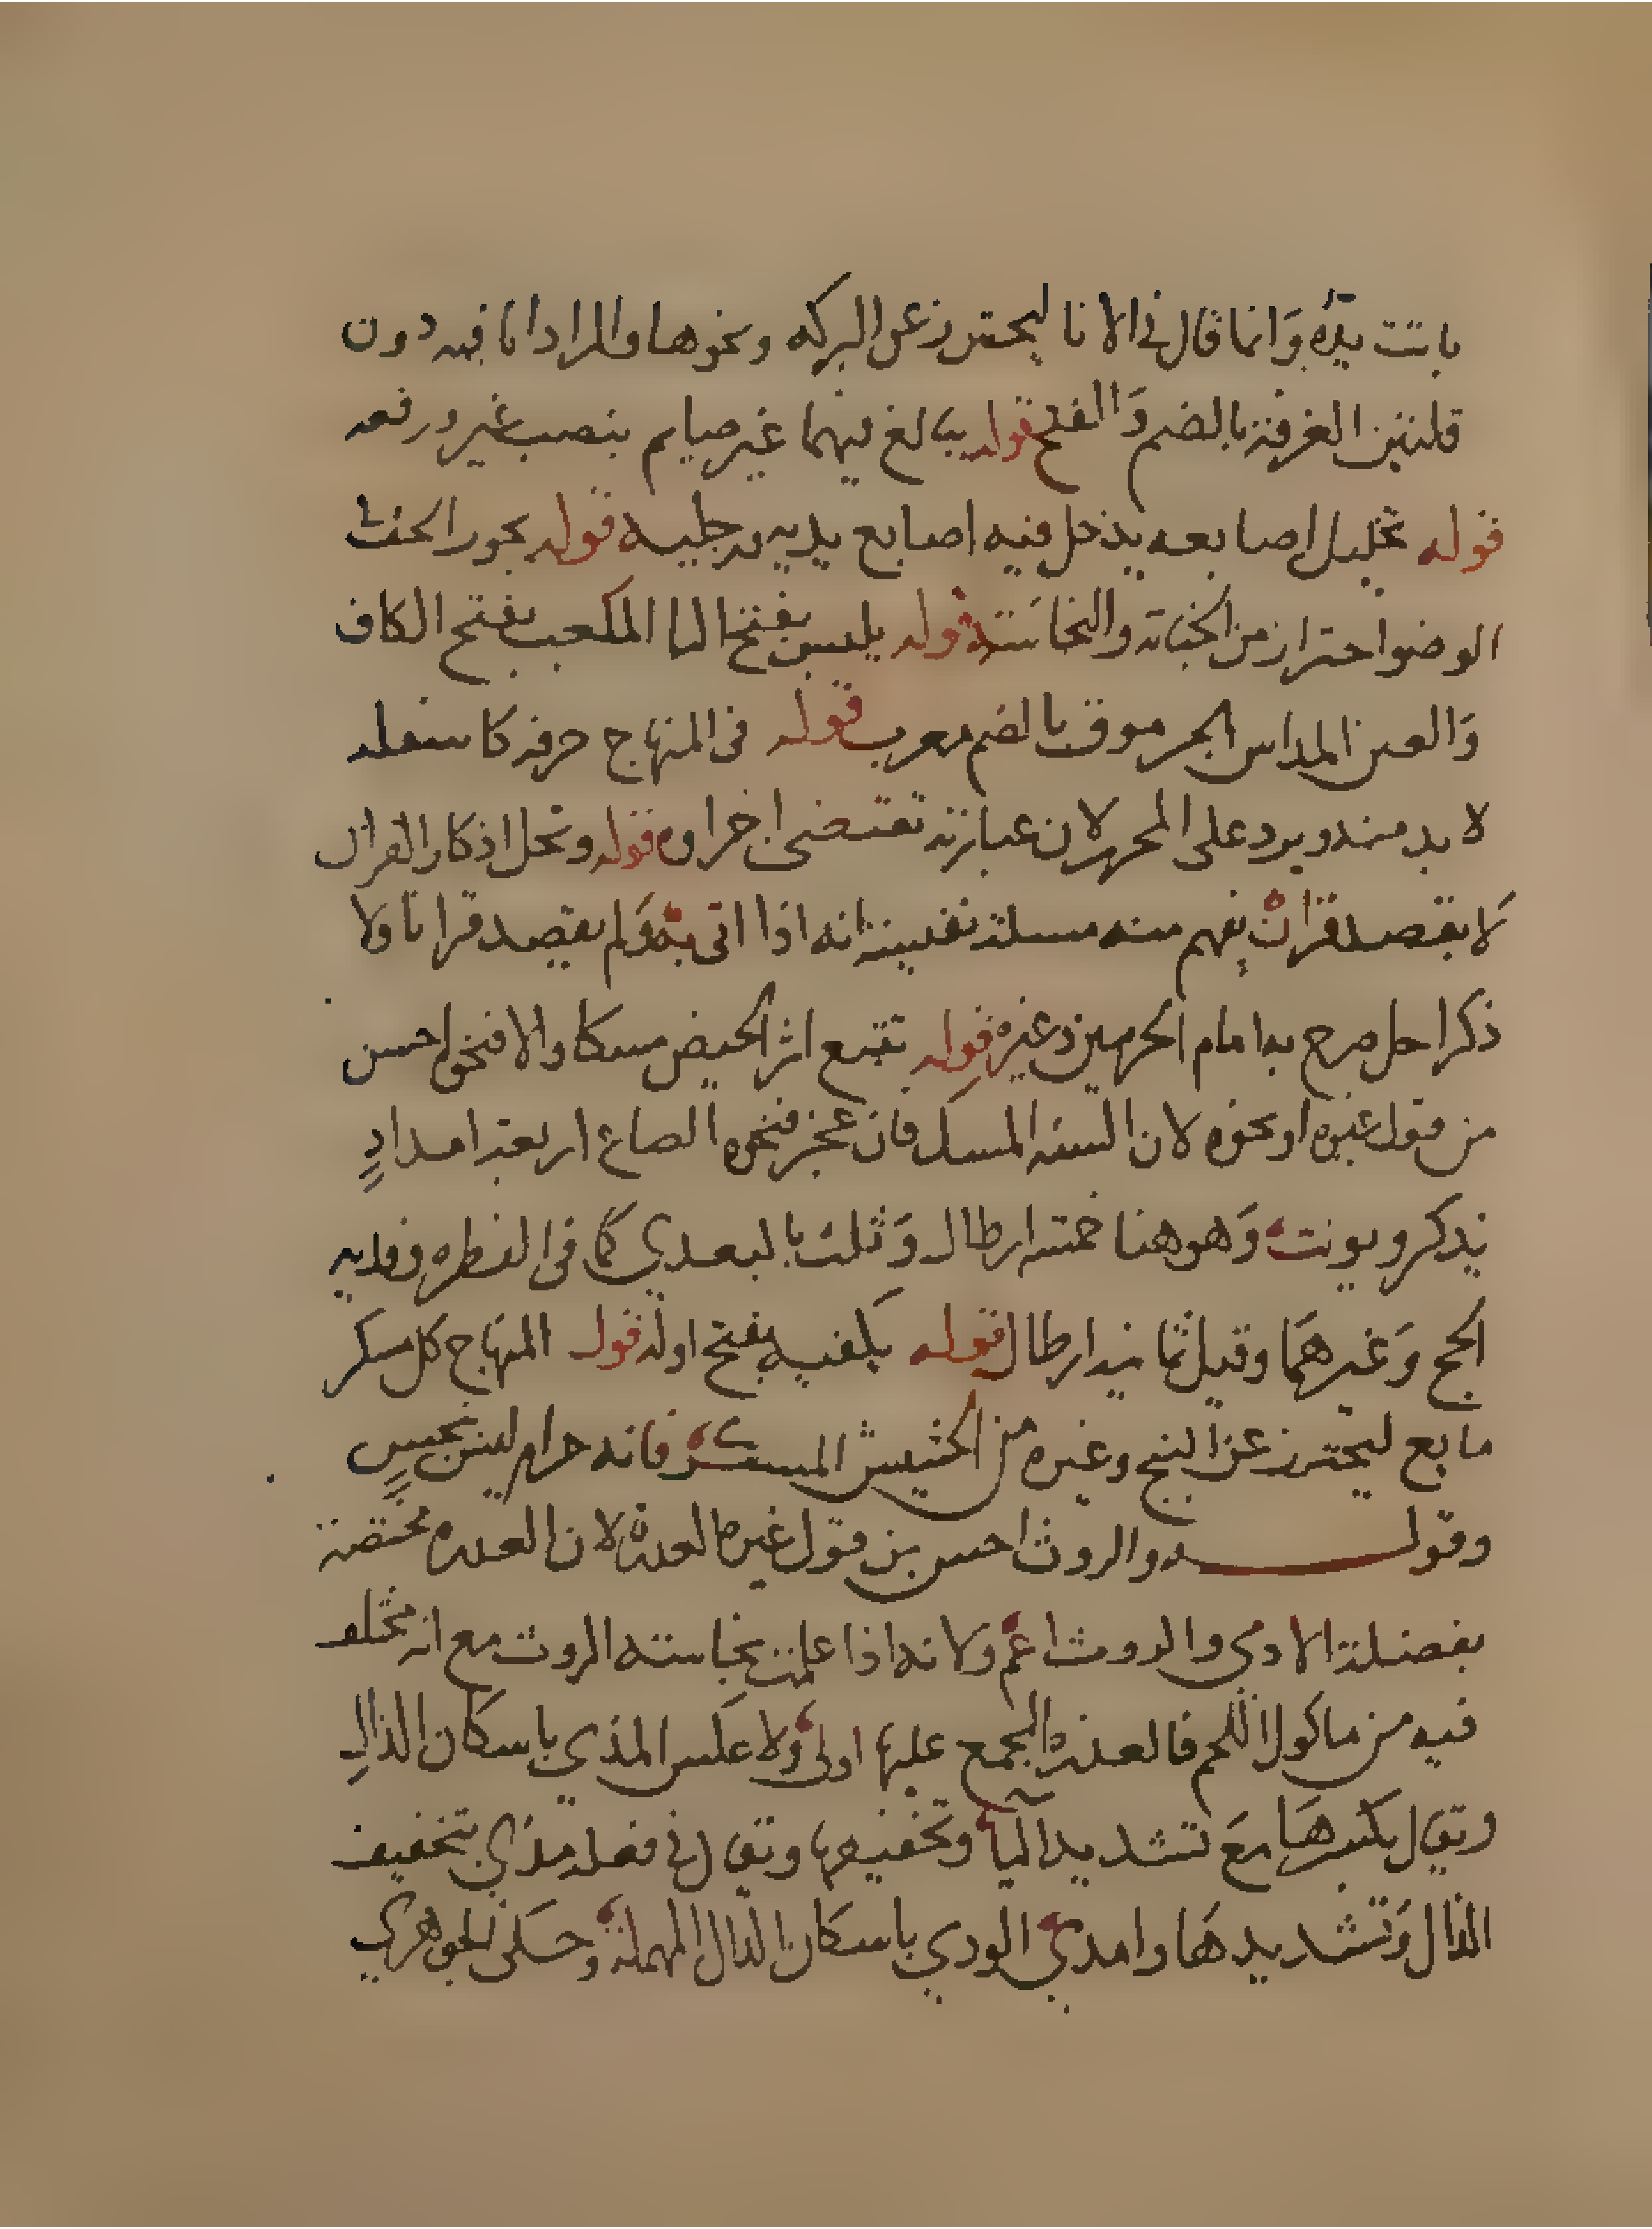 باتت يده وانما قال في الانا ليحترز عن البركه ونحوها والمراد انا فيه دون
قلتين الغرفة بالضم والفتح قوله يبالغ فيهما غير صايم بنصب غير ورفعه
قوله تخليل اصابعه يدخل فيه اصابع يديه ورجليه قوله يجوز الخف في
الوضو احترازمن الجنابة والنجاسة قوله يلبس بفتح البا المكعب بفتح الكاف
والعين المداس الجرموق بالضم معرب قوله في المنهاج حرفه كاسفله
لا بد منه ويرد على المحرر لان عبارته تقتضي اجزاوه قوله وتحل اذكار القران
لا بقصد قران يفهم منه مسلة نفيسة انه اذا اتى به ولم يقصد قرانا ولا
ذكرا حل صرح به امام الحرمين وغيره قوله تتبع اثر الحيض مسكا والا فنحوه احسن
من قول غيره او نحوه لان السنه المسك فان عجز فنحوه الصاع اربعة امداد
يذكر ويونث وهو هنا خمسه ارطال وثلث بالبغدادي كما في الفطره وفديه
الحج وغيرهما وقيل ثمانيه ارطال قوله يكفيه بفتح اوله قول المنهاج كل مسكر
مايع ليحترز عن البنج وغيره من الحشيش المسكر فانه حرام ليس بنجس
وقوله والروث احسن من قول غيره العذرة لان العذره مختصة
بفضلة الادمي والروث اعم ولانه اذا علمت نجاسته الروث مع انه مختلف
فيه من ماكول اللحم فالعذرة المجمع عليها اولى ولا عكس المذي باسكان الذال
ويقال بكسرها مع تشديد اليا وتخفيفها ويقال في فعله مذي بتخفيف
الذال وتشديدها وامذي الودي باسكان الدال المهملة وحكى الجوهري